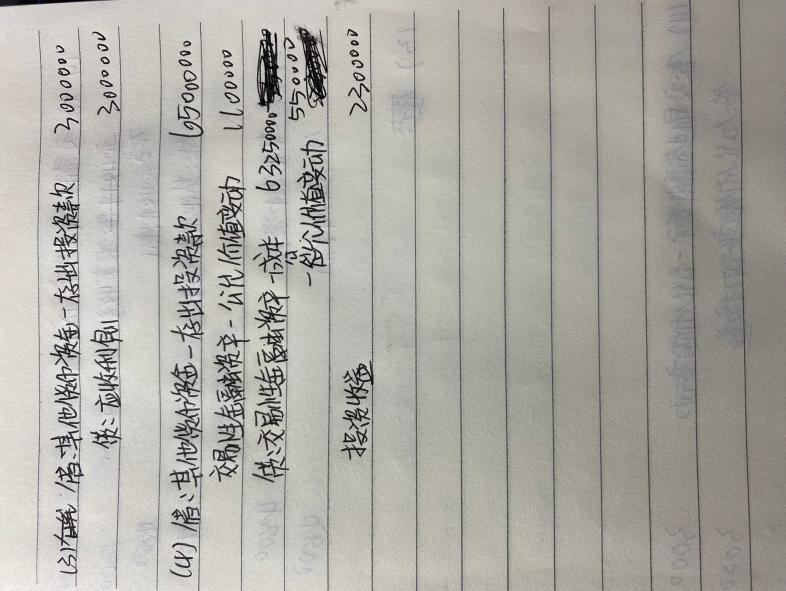 (3) 借：其他货币资金－存出投资款 3000000
贷：应收利息 3000000
(4) 借：其他货币资金－存出投资款 65000000
交易性金融资产－公允价值变动 1100000
贷：交易性金融资产－成本 63250000
－公允价值变动 550000
投资收益 2300000